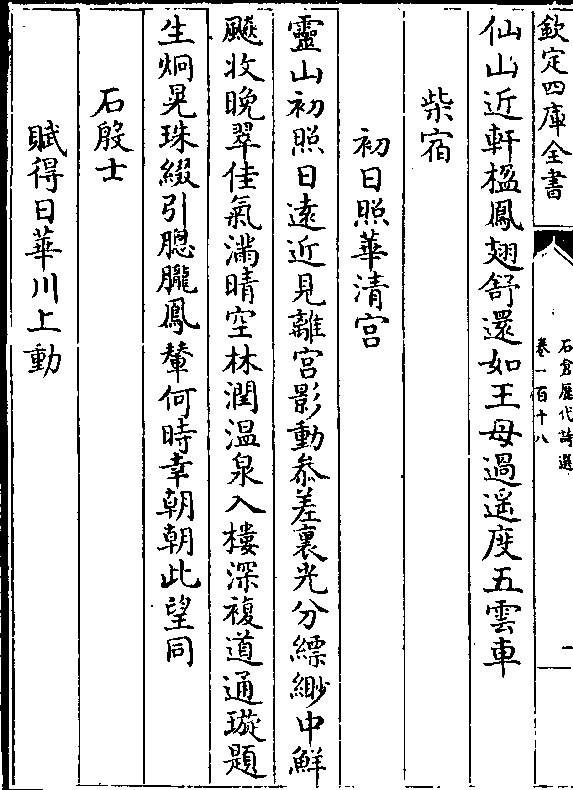 欽定四庫全書
石倉歷代詩選
卷一百十八
一
仙山近軒楹鳳翅舒還如王母過遥度五雲車
柴宿
初日照華清宫
靈山初照日遠近見離宫影動叅差裏光分縹緲中鮮
飈收晚翠佳氣滿晴空林潤温泉入樓深複道通璇題
生炯晃珠綴引朧朧鳳輦何時幸朝朝此望同
石殷士
賦得日華川上動